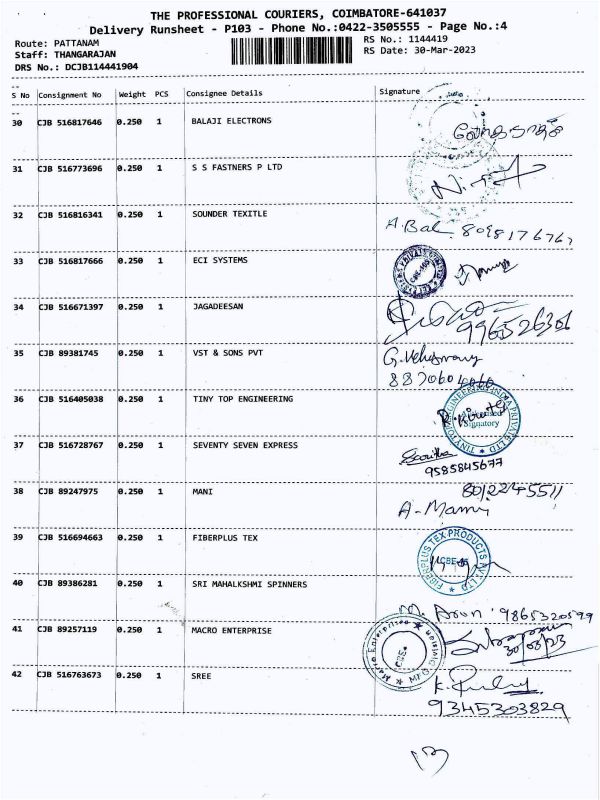 THE PROFESSIONAL COURIERS, COIMBATORE-641037
Delivery Runsheet - P103 - Phone No.:0422-3505555 - Page No.:4
Route: PATTANAM
RS No.: 1144419
Staff: THANGARAJAN
RS Date: 30-Mar-2023
DRS No.: DCJB114441904
S No Consignment No Weight PCS Consignee Details Signature
30 CJB 516817646 0.250 1 BALAJI ELECTRONS
31 CJB 516773696 0.250 1 S S FASTNERS P LTD
32 CJB 516816341 0.250 1 SOUNDER TEXITLE
A. Bal 8098176767
33 CJB 516817666 0.250 1 ECI SYSTEMS
34 CJB 516671397 0.250 1 JAGADEESAN
9965526306
35 CJB 89381745 0.250 1 VST & SONS PVT
8870604060
36 CJB 516405038 0.250 1 TINY TOP ENGINEERING
Signatory
37 CJB 516728767 0.250 1 SEVENTY SEVEN EXPRESS
9585845677
38 CJB 89247975 0.250 1 MANI
8012245511
A-Mani
39 CJB 516694663 0.250 1 FIBERPLUS TEX
FIBERPLUS TEX PRODUCTS PVT LTD
40 CJB 89386281 0.250 1 SRI MAHALKSHMI SPINNERS
M. Arun 9865320599
41 CJB 89257119 0.250 1 MACRO ENTERPRISE
30/03/23
42 CJB 516763673 0.250 1 SREE
9345303829